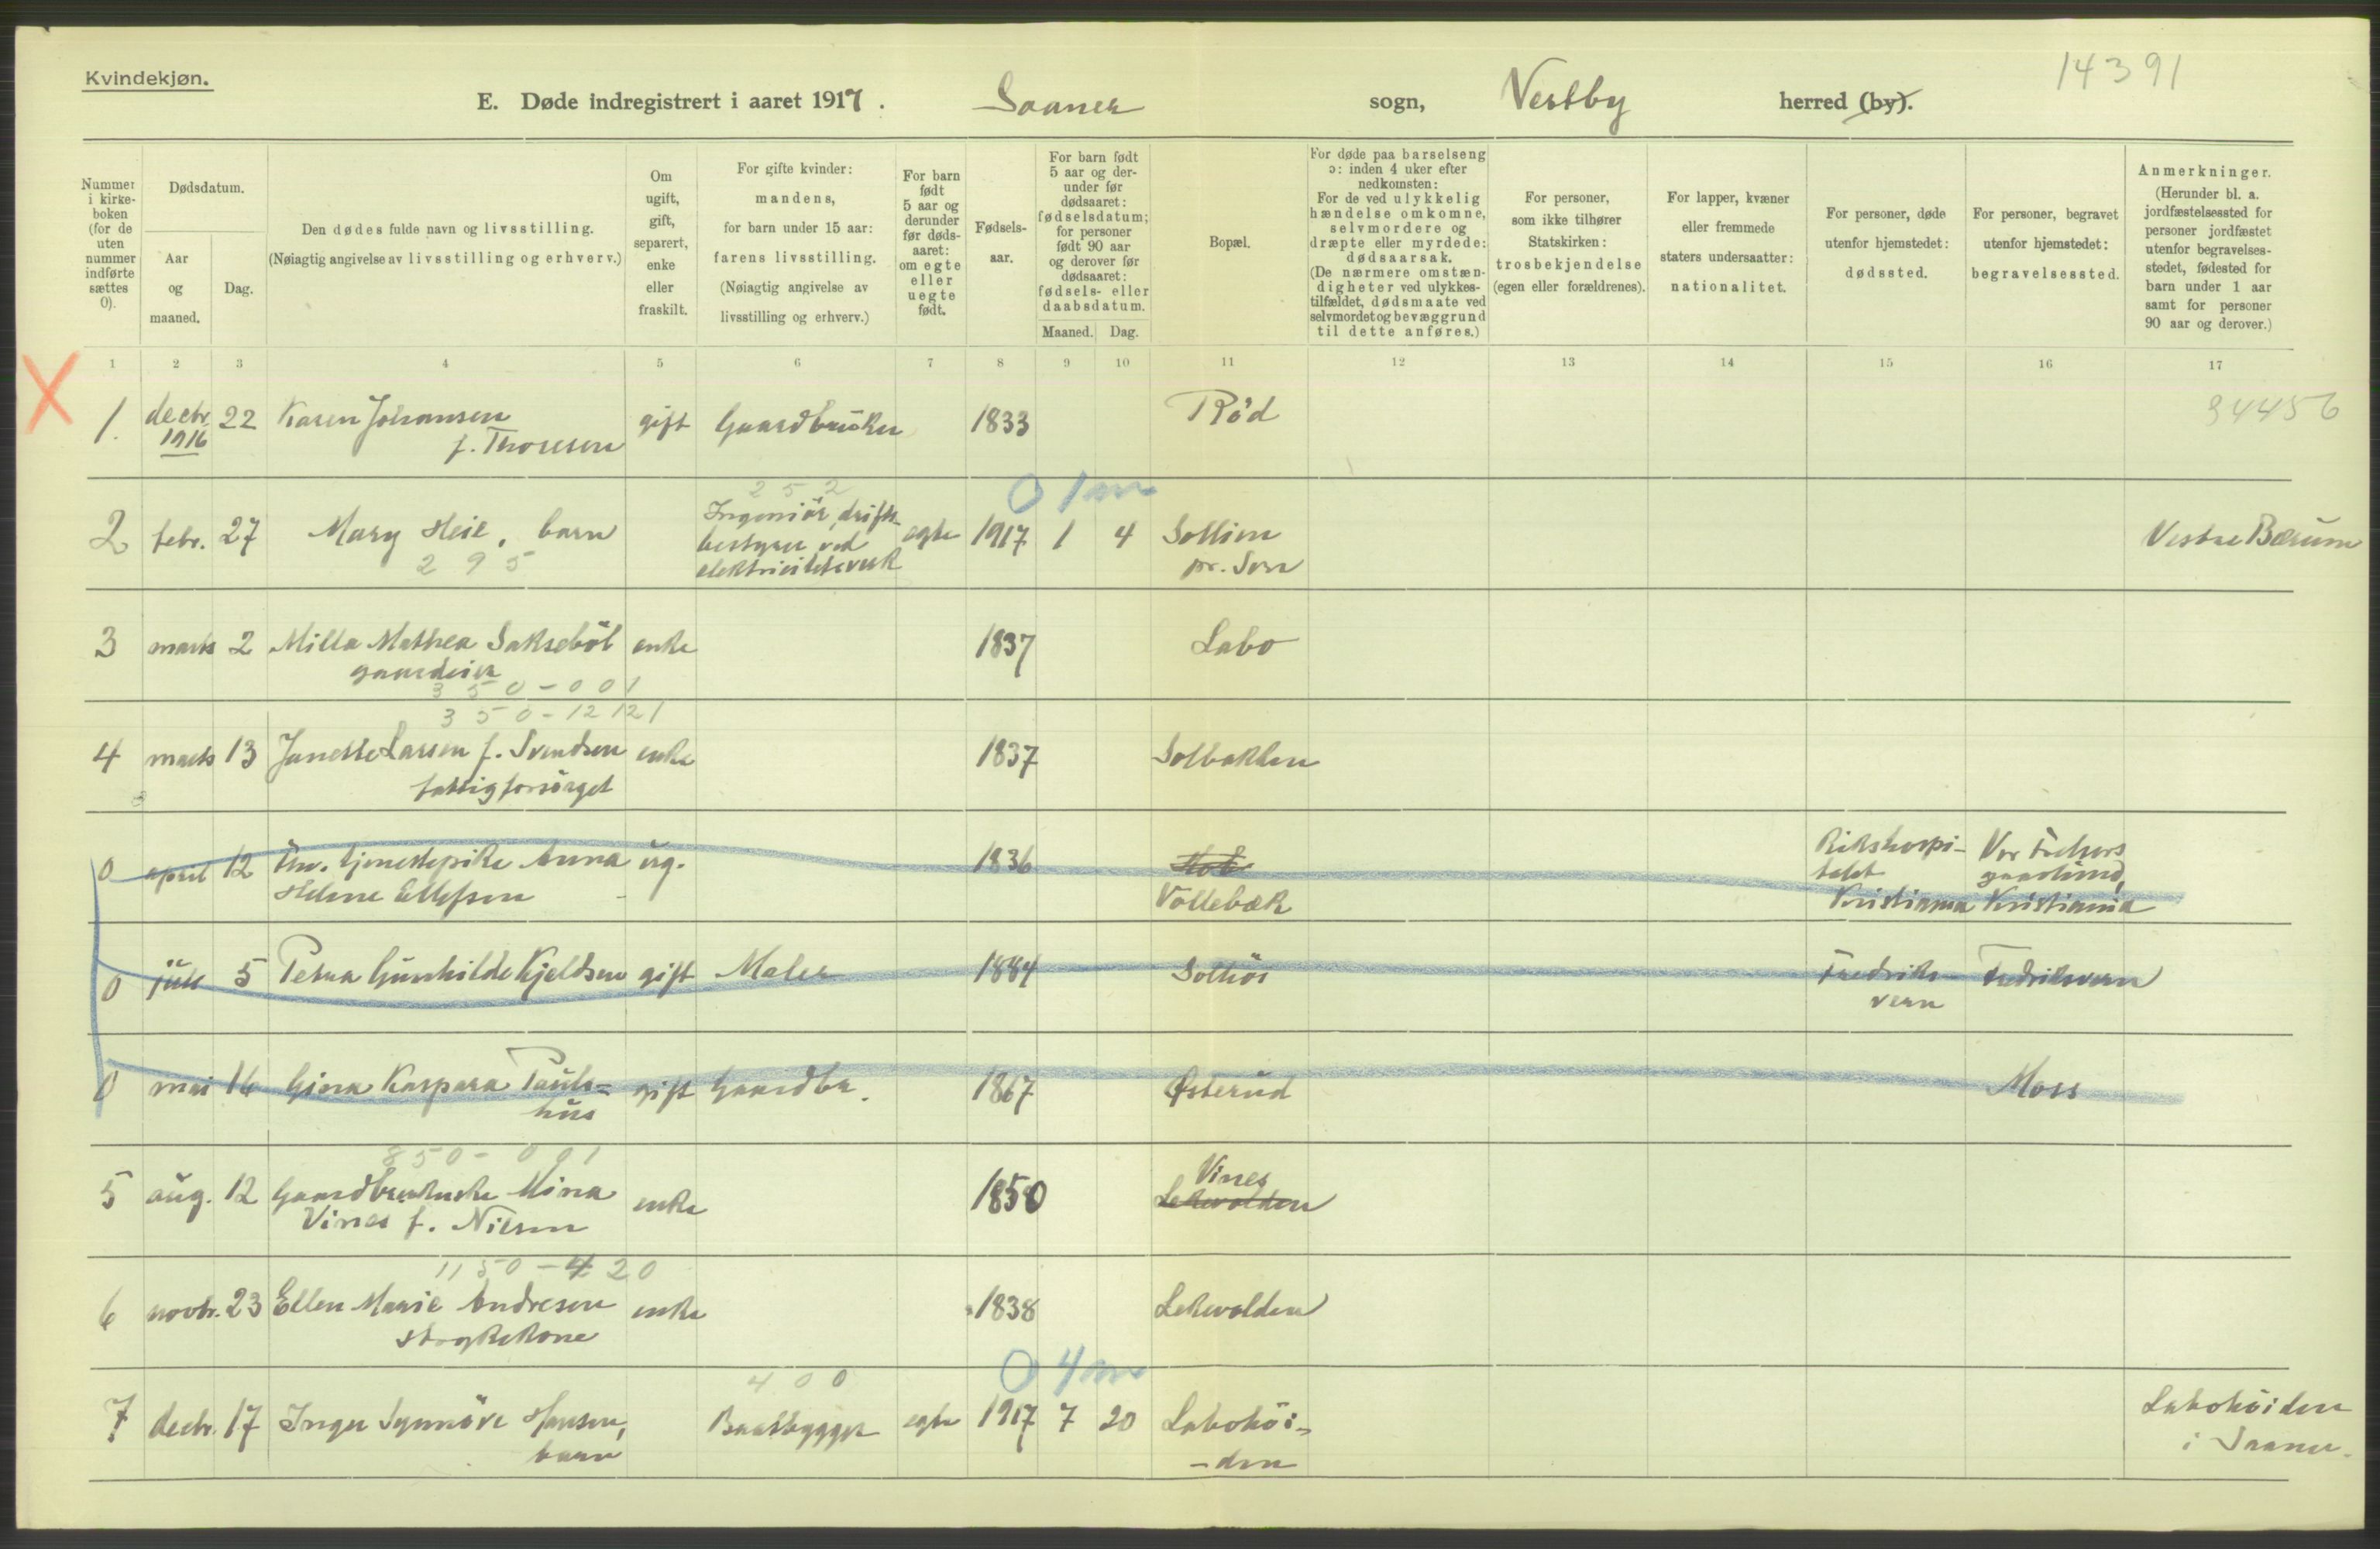 Kvindekjøn.
14391
E. Døde indregistrert i aaret 1917. Saaner sogn, Vestby herred (by).
Nummer i kirke-boken (for de uten nummer indførte sættes 0).
Dødsdatum.
Aar og maaned.
Dag.
Den dødes fulde navn og livsstilling.
(Nøiagtig angivelse av livsstilling og erhverv.)
Om ugift, gift, separert, enke eller fraskilt.
For gifte kvinder: mandens, for barn under 15 aar: farens livsstilling. (Nøiagtig angivelse av livsstilling og erhverv.)
For barn født 5 aar og derunder før døds-aaret: om egte eller uegte født.
Fødsels-aar.
For barn født 5 aar og der-under før dødsaaret: fødselsdatum; for personer født 90 aar og derover før dødsaaret: fødsels- eller daabsdatum.
Maaned. Dag.
Bopæl.
For døde paa barselseng ɔ: inden 4 uker efter nedkomsten: For de ved ulykkelig hændelse omkomne, selvmordere og dræpte eller myrdede: dødsaarsak. (De nærmere omstæn-digheter ved ulykkes-tilfældet, dødsmaate ved selvmordet og bevæggrund til dette anføres.)
For personer, som ikke tilhører Statskirken: trosbekjendelse (egen eller forældrenes).
For lapper, kvæner eller fremmede staters undersaatter: nationalitet.
For personer, døde utenfor hjemstedet: dødssted.
For personer, begravet utenfor hjemstedet: begravelsessted.
Anmerkninger. (Herunder bl. a. jordfæstelsessted for personer jordfæstet utenfor begravelses-stedet, fødested for barn under 1 aar samt for personer 90 aar og derover.)
1 2 3 4 5 6 7 8 9 10 11 12 13 14 15 16 17
1. decbr. 1916 22 Karen Johansen f. Thoresen gift Gaardbruker 1833 Röd 34456
252 0 1 m
2 febr. 27 Mary Heie, barn Ingeniör, drifts-bestyrer ved elektricitetsverk egte 1917 1 4 Sollien pr. Son Vestre Bærum
295
3 marts 2 Milla Mathea Sakseböl gaardeier enke 1837 Labo
350-001
350-12121
4 marts 13 Janette Larsen f. Svendsen fattigforsörget enke 1837 Solbakken
0 april 12 Fhv. tjenestepike Anna Helene Ellefsen ug. 1836 Vollebæk Rikshospi-talet Kristiania Vor Frelsers gravlund, Kristiania
0 juli 5 Petra Gunhilde Kjeldsen gift Maler 1884 Solhös Fredriks-vern Fredriksvern
0 mai 14 Gina Kaspara Pauls-hus gift Gaardbr. 1867 Østerud Moss
850-001
5 aug. 12 Gaardbrukerske Mina Vines f. Nilsen enke 1850 Vines Lekevolden
1150-420
6 novbr. 23 Ellen Marie Andresen strykekone enke 1838 Lekevolden
400 0 4 m
7 decbr. 17 Inger Synnöve Hansen, barn Baatbygger egte 1917 7 20 Labohöi-den Labohöiden i Saaner.